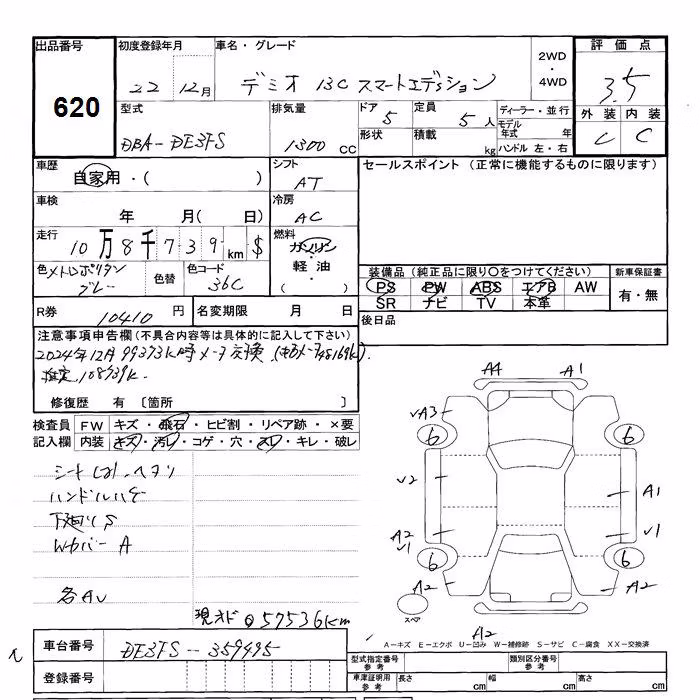 出品番号
620
初度登録年月
22 12月
車名・グレード
デミオ 13C スマートエディション
2WD
・
4WD
評価点
3.5
型式
DBA-DE3FS
排気量
1300 cc
ドア
5
定員
5 人
形状
積載
kg
ディーラー・並行
モデル
年式 年
ハンドル 左・右
外装 内装
C C
車歴
自家用・( )
シフト
AT
セールスポイント (正常に機能するものに限ります)
車検
年 月( 日)
冷房
AC
走行
10万8千739km・$
燃料
ガソリン
軽油
( )
色 メトロポリタン
グレー
色替
色コード
36C
装備品 (純正品に限り○をつけてください)
PS PW ABS エアB AW
SR ナビ TV 本革
新車保証書
有・無
R券 10410 円
名変期限 月 日
後日品
注意事項申告欄 (不具合内容等は具体的に記入して下さい)
2024年12月99373k時メータ交換(
推定108739k.
修復歴 有 〔箇所 〕
検査員
記入欄
FW キズ・飛石・ヒビ割・リペア跡・×要
内装 キズ・汚レ・コゲ・穴・スレ・キレ・破レ
ハンドルハゲ
下廻りS
WカバーA
各AU
現オド 57536km
A4 A1
UA3
6 6
U2
A1
A2
U1
U1
6 6
A2 A2
スペア
A2
A-キズ E-エクボ U-凹み W-補修跡 S-サビ C-腐食 XX-交換済
車台番号
DE3FS-359495
登録番号
型式指定番号
参考
類別区分番号
参考
車庫証明用
参考
長さ cm
幅 cm
高さ cm